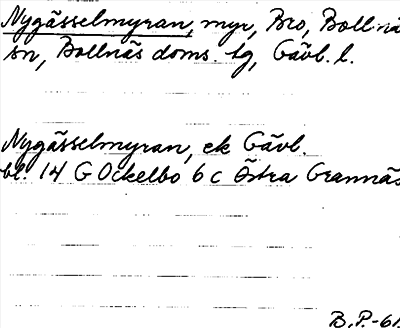 Nygässelmyran, myr, Bro, Bollnä
sn, Bollnäs doms. tg, Gävl. l.
Nygässelmyran, ek Gävl.
bl. 14 G Ockelbo 6 c Östra Grannäs
B.P.-61.